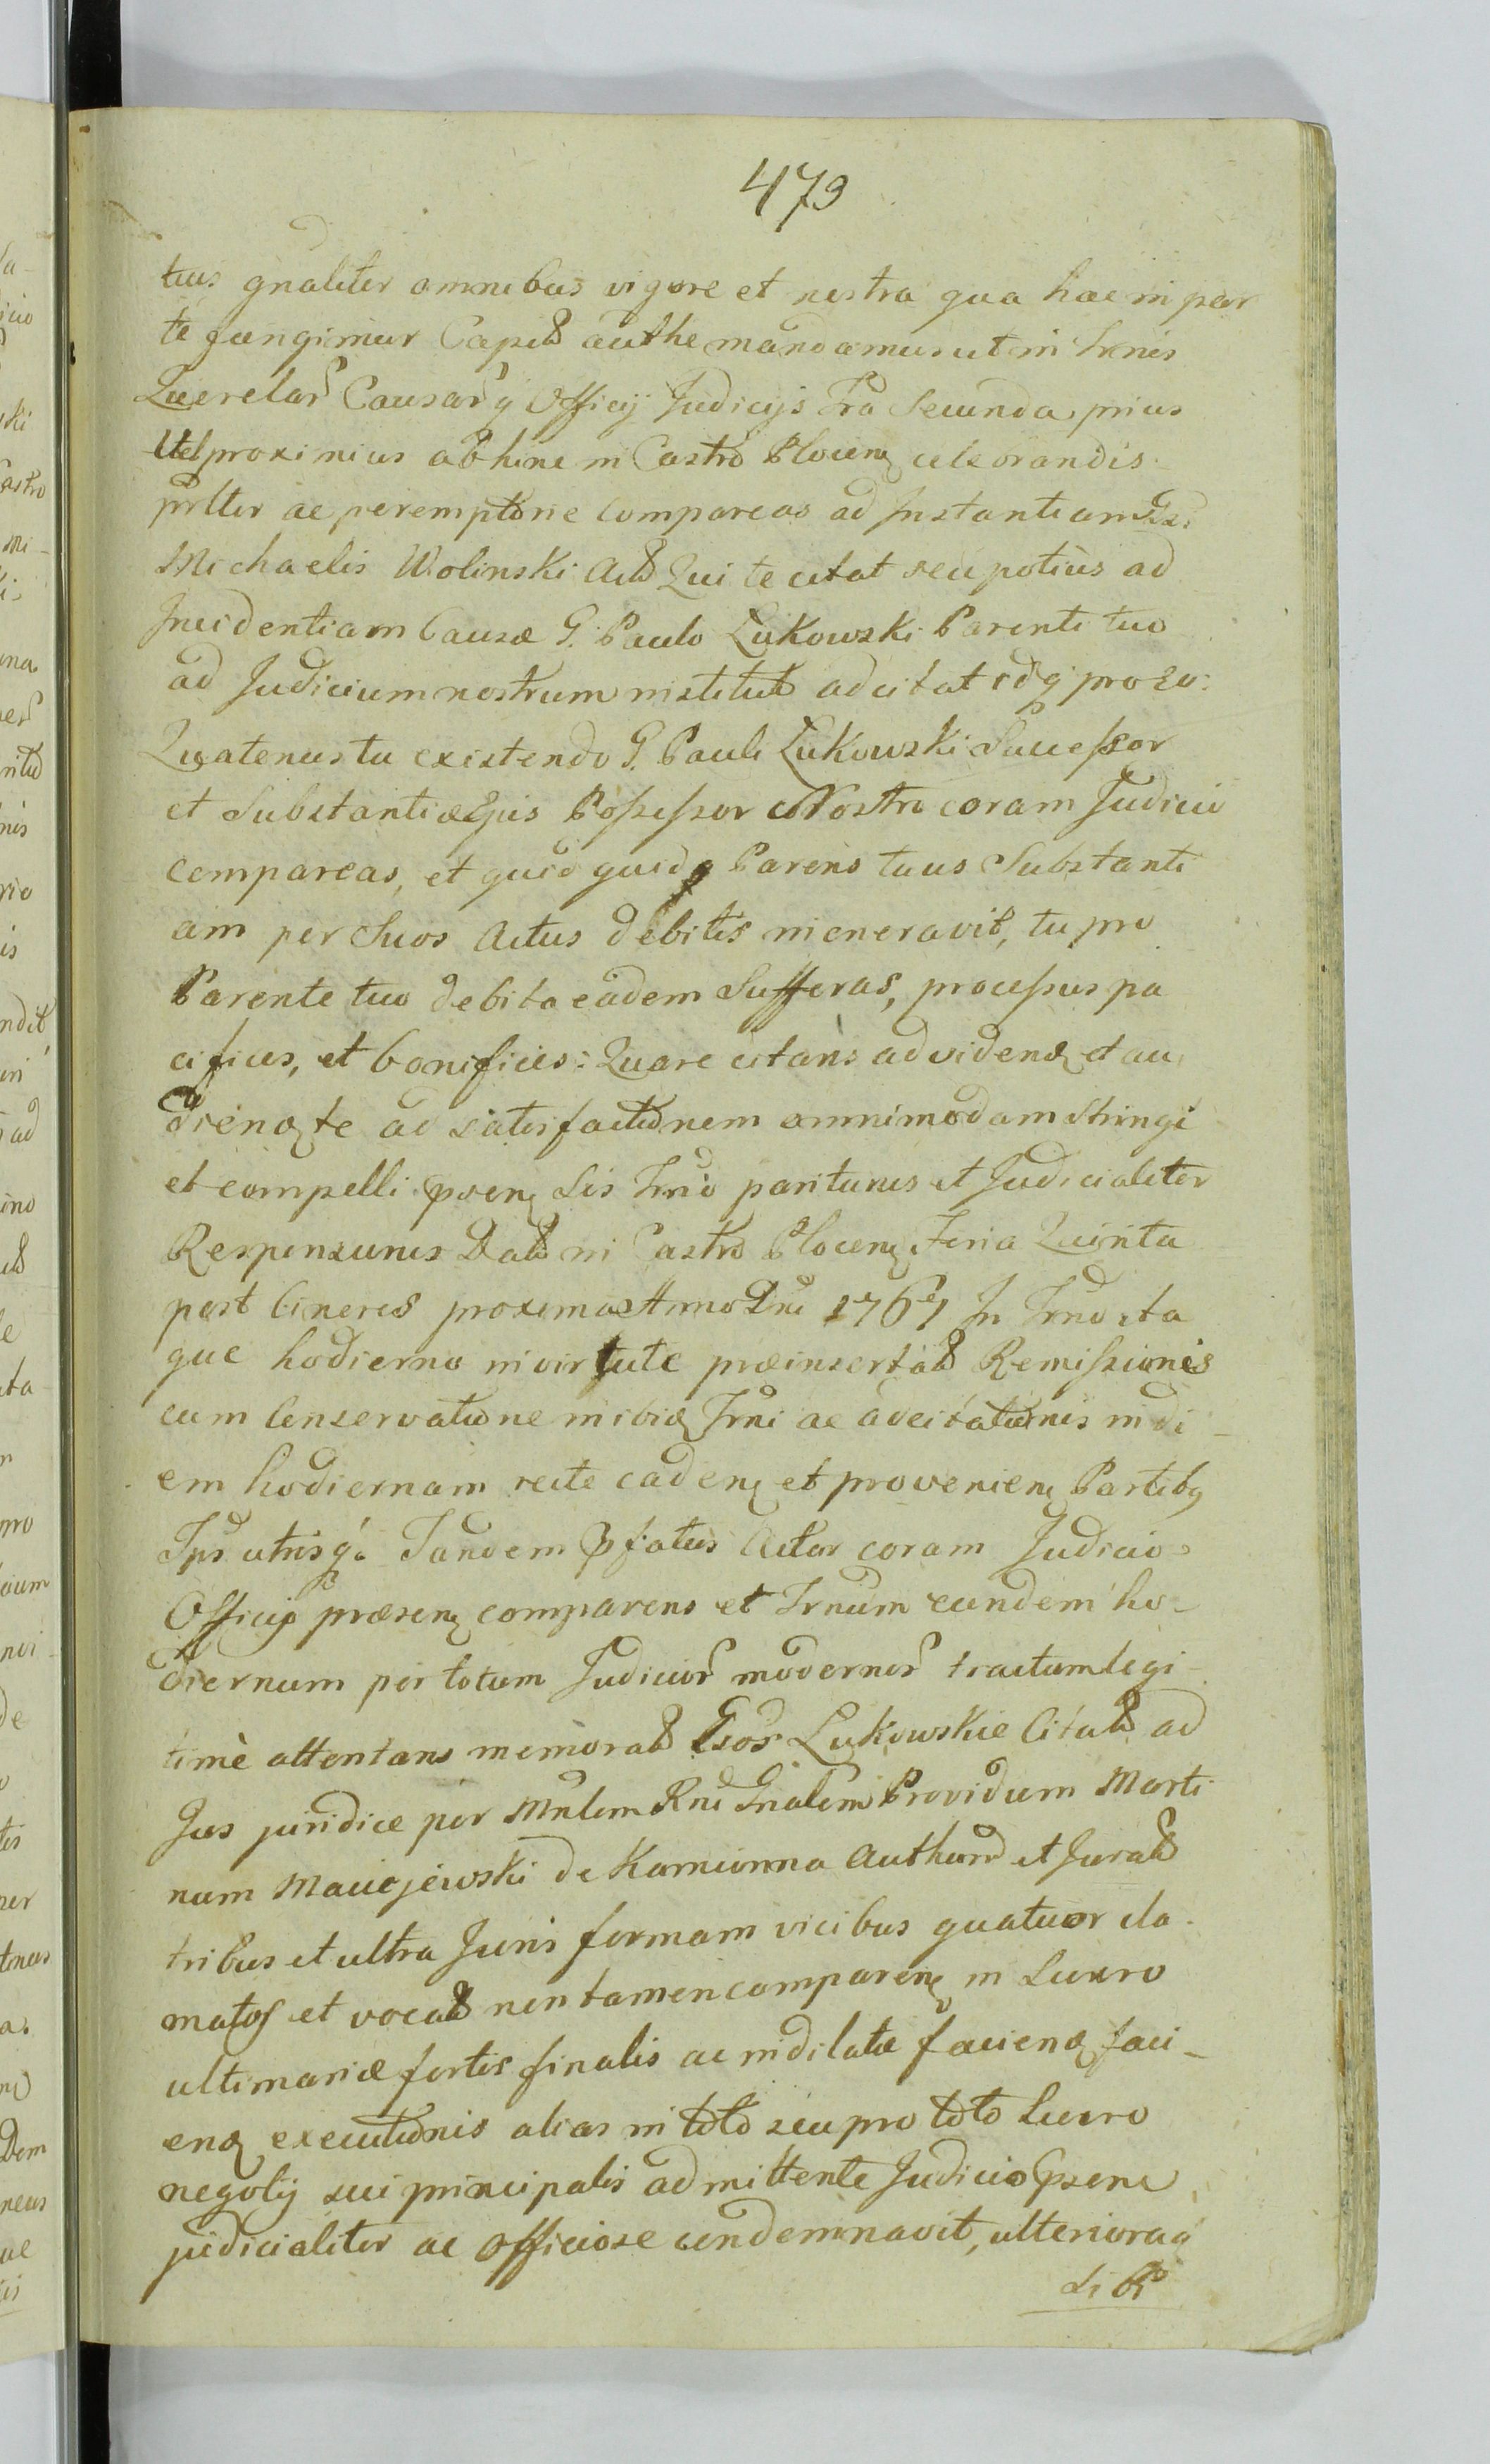 473
tuis gnaliter omnibus vigore et nostra qua hac in par
te fungimur Capitd authe mandamus ut in Trnis
Querelar Causarq Officij Judicijs Fra Secunda prius
vel proximius abhinc in Castro Plocen celebrandis
prlter ac peremptorie compareas ad Instantiam Gsi
Michaelis Wolinski Act Qui te citat seu potius ad
Incidentiam Causæ G. Paulo Łukowski Parenti tuo
ad Judicium nostrum institut adcitat idq pro eo:
Quatenus tu existendo G. Pauli Łukowski Successor
et Substantiæ Ejus Possessor Nostro coram Judicio
compareas, et quid quidq Parens tuus Substanti
am per Suos Actus debitis inoneravit, tu pro
Parente tuo debita eadem Sufferas, processus pa
cifices, et bonifices: Quare citans ad videnđ et au
dienđ te ad satisfactionem omnimodam stringi
et compelli poen Sis Trno pariturus et Judicialiter
Responsurus Dat in Castro Plocen Feria Quinta
post Cineres proxima Anno Dni 1767 In Trno ita
que hodierno in virtute præinsertat Remissionis
cum Conservatione in ibiđ Trni ac adcitationis in di
em hodiernam recte caden et provenien Partibq
Ips utrisq. Tandem Pfatus Actor coram Judicio
Officijq præsen comparens et Trnum eundem ho-
diernum per totum Judicior modernor tractum legi
time attentans memorat Gsos Łukowskie Citat ad
Jus juridice per Mnlem Rni Gnalem Providum Marti
num Maciejewski de Kamionna Authord et Jurat
tribus et ultra Juris formam vicibus quatuor cla
matos et vocat non tamen comparen in Lucro
ultimariæ fortis finalis ac indilatæ facienđ faci-
enđ executionis alias in toto seu pro toto lucro
negotij sui principalis admittente Judicio Psene
judicialiter ac Officiose condemnavit, ulterioraq